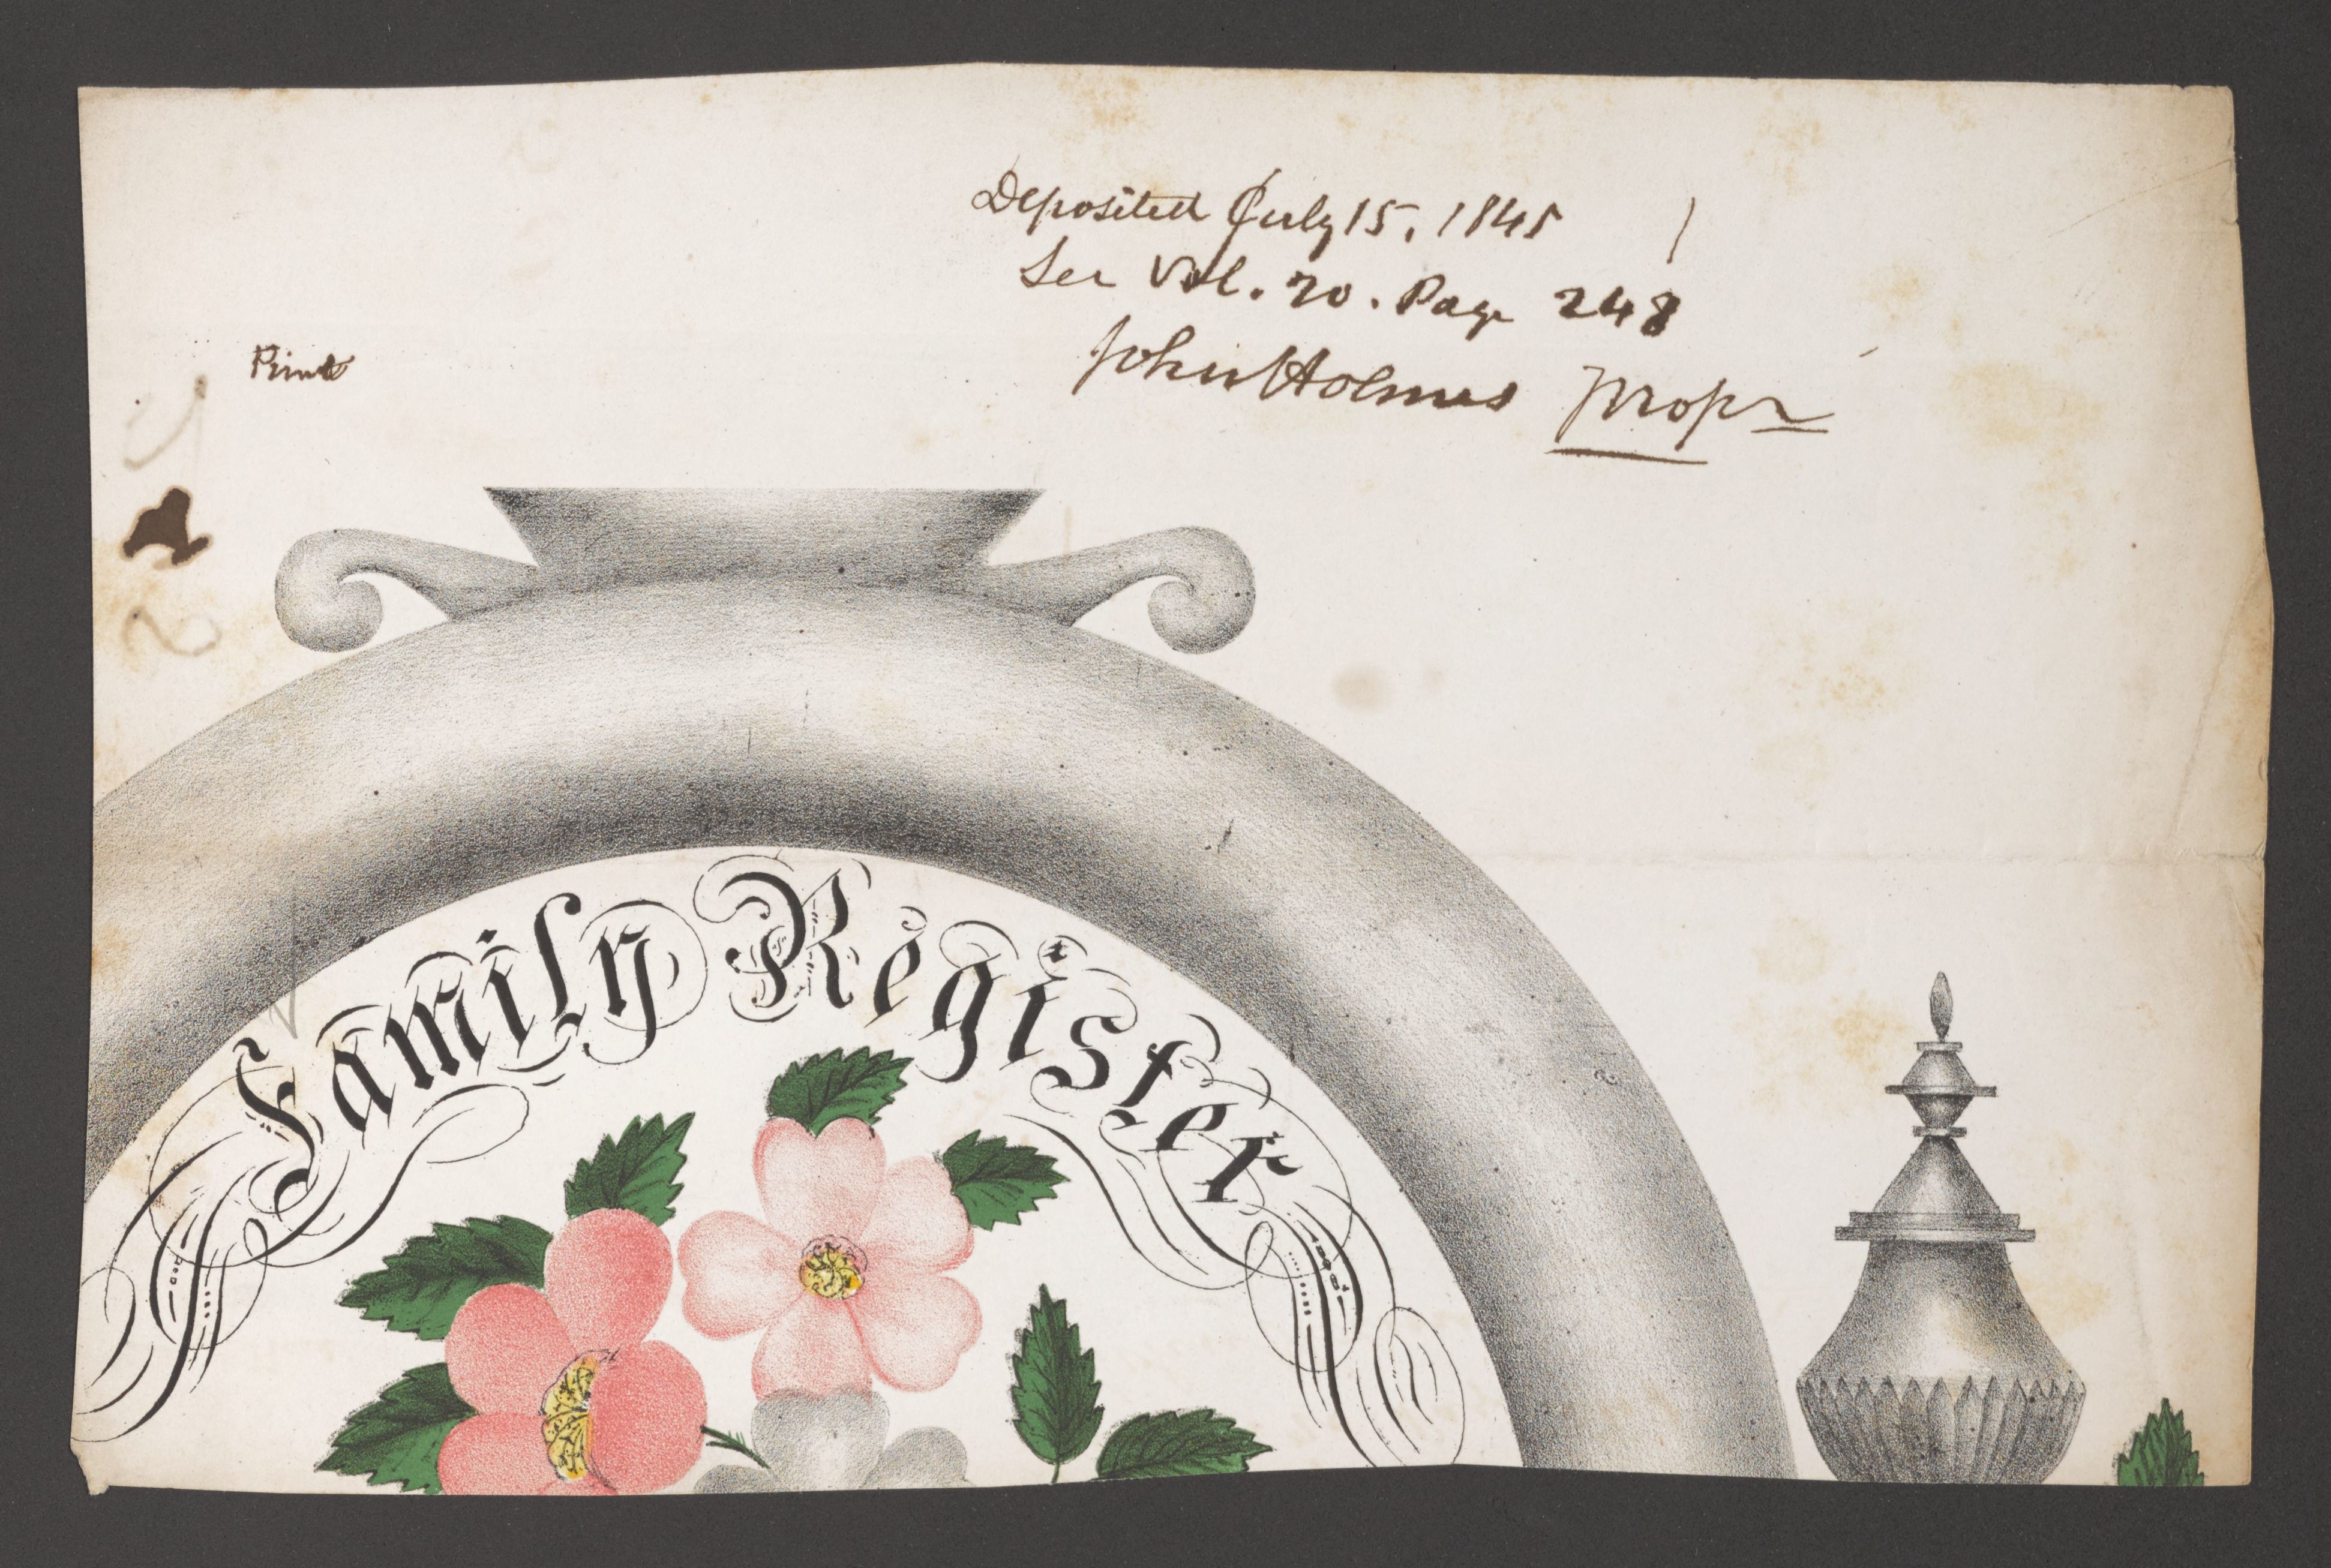 Deposited July 15, 1845
See Vol. 20. Page 248
John Holmes Propr
Print
Family Register